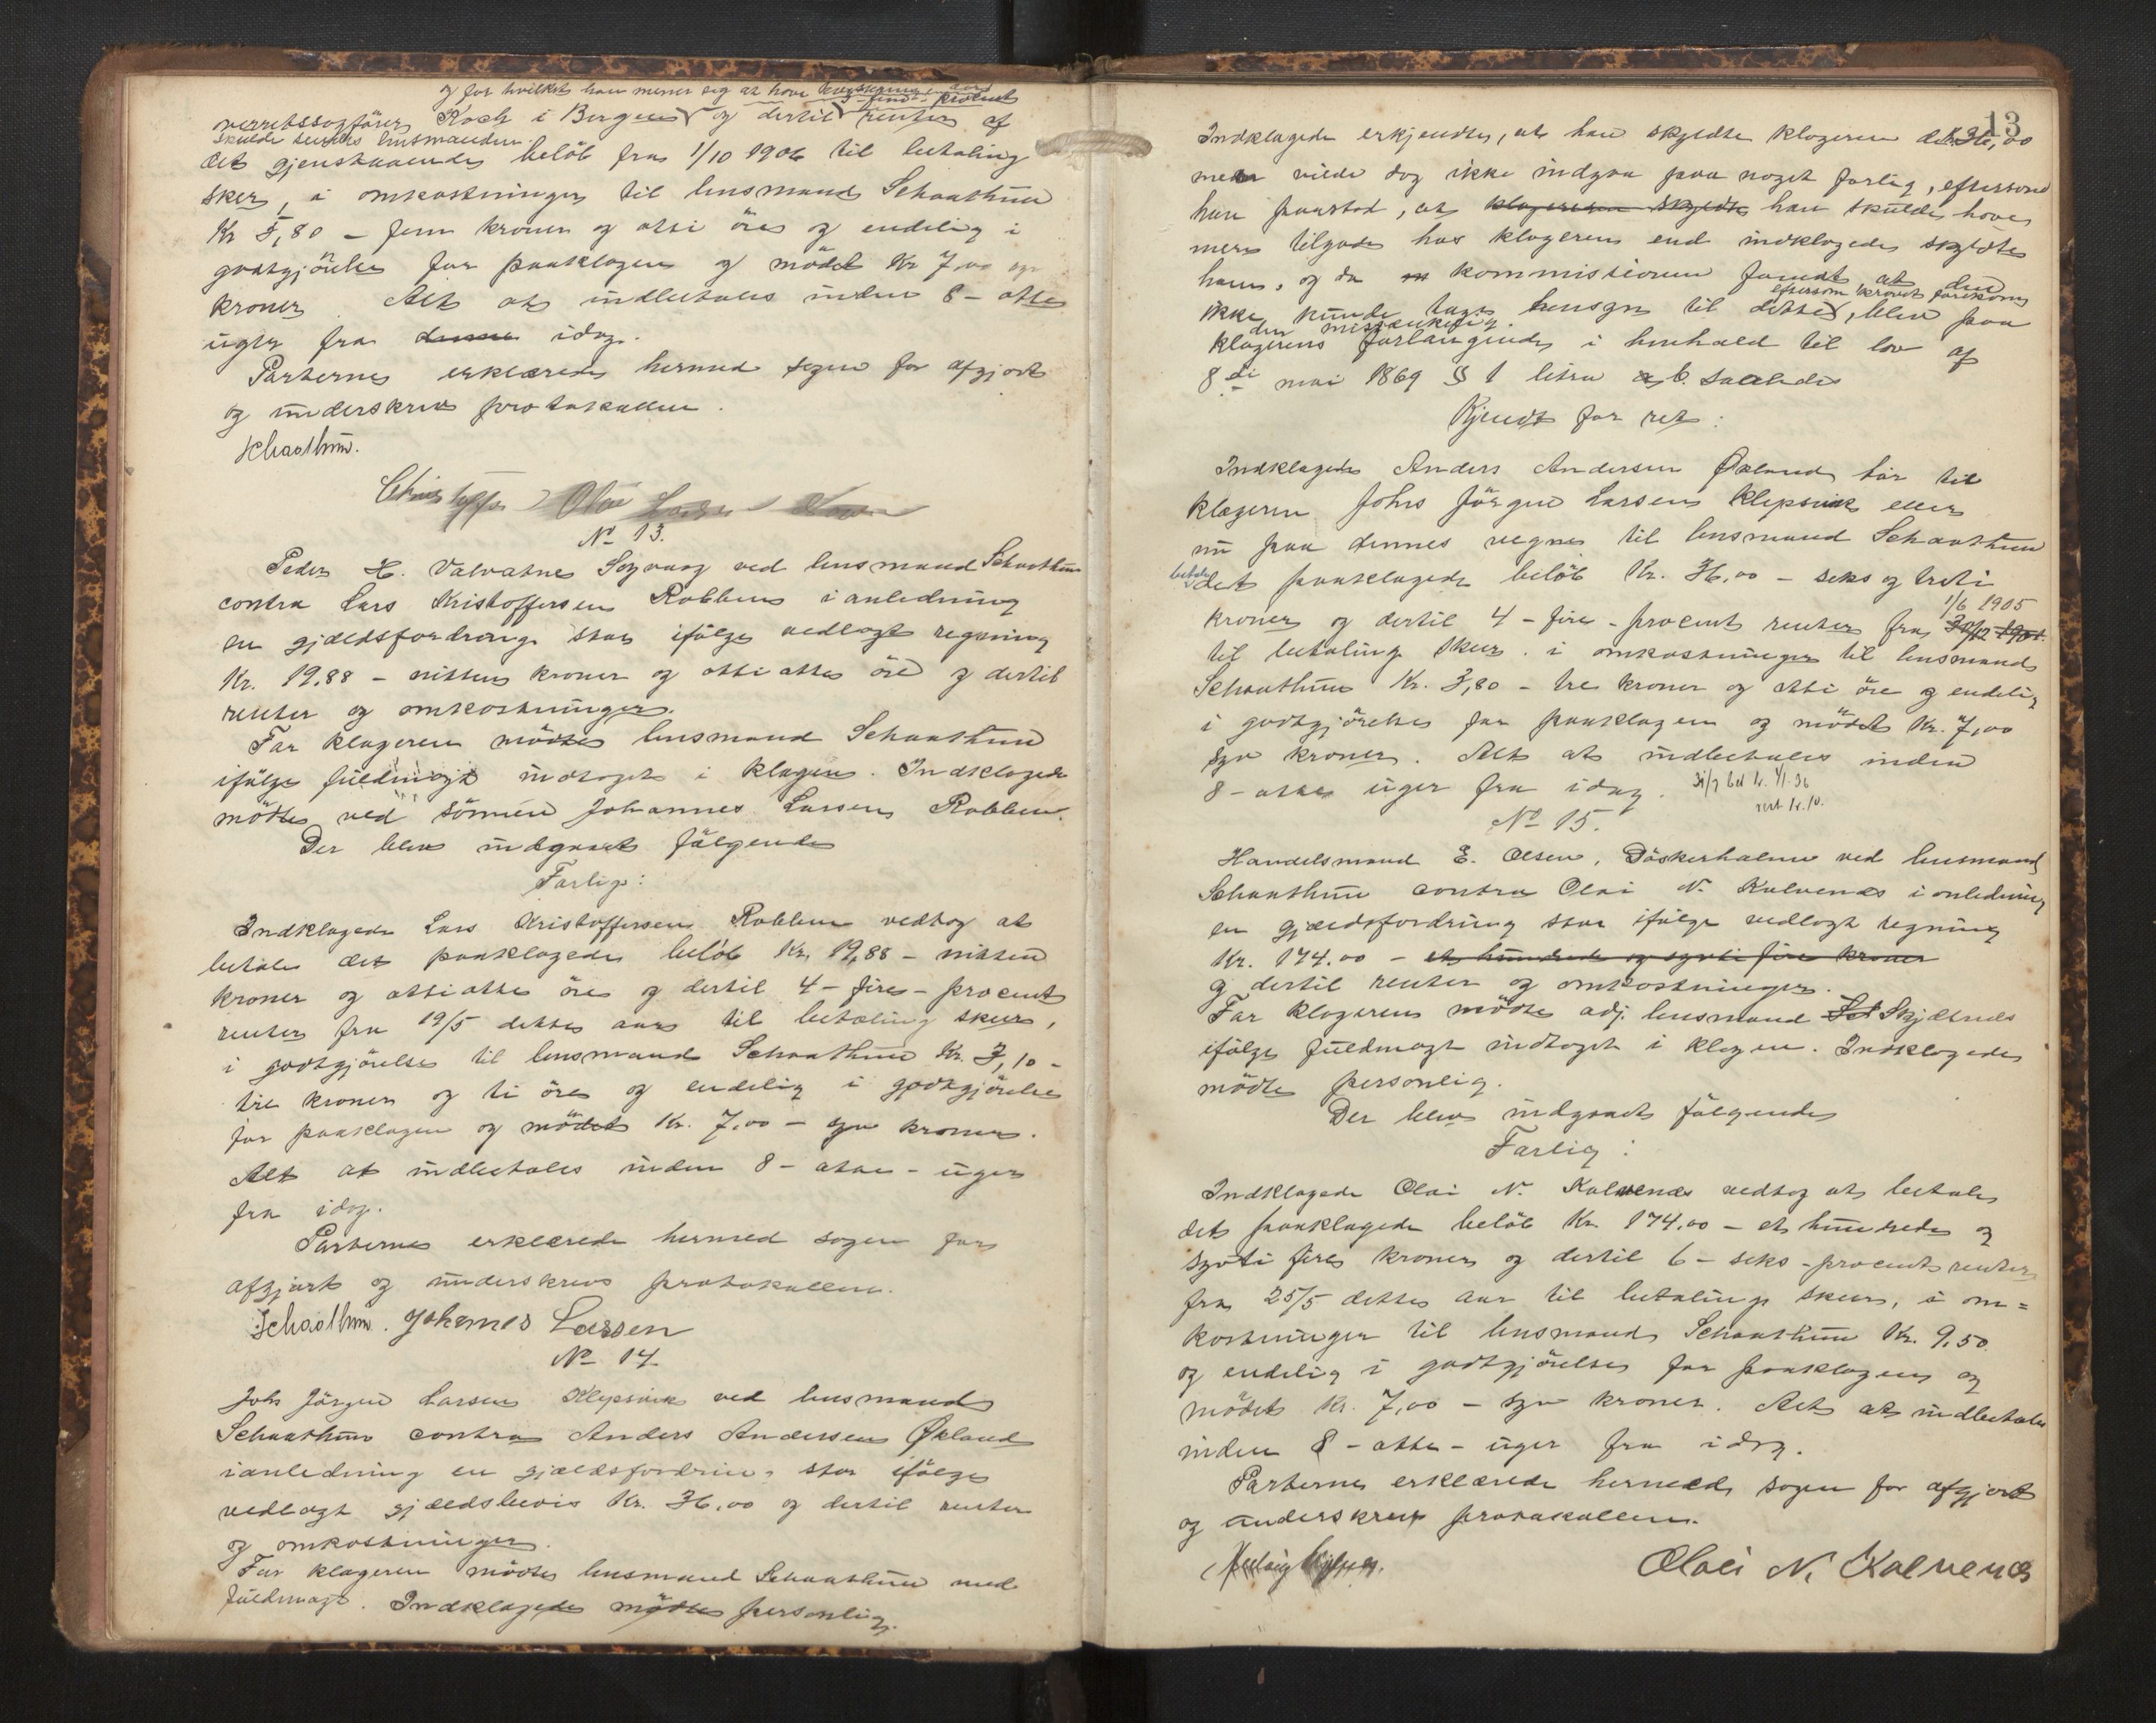 og for hvilket han mener sig at have
5 - fem - procent
overretssagfører Koch i Bergen og dertil renter af
skulde lensmanden
det gjenstaaende beløb fra 1/10 1906 til betaling
sker, i omkostninger til lensmand Schaathun
Kr 5,80 - fem kroner og otti øre og endelig i
godtgjörelse for paaklagen og mödet Kr 7,00 syv
kroner. Alt at indbetales inden 8 - otte
uger fra denne idag.
Parterne erklærede hermed sagen for afgjort
og underskrev protokollen.
Schaathun.
No 13.
Peder H. Valvatne Sagvaag ved lensmand Schaathun
contra Lars Kristoffersen Robben i anledning
en gjældsfordring stor ifölge vedlagt regning
Kr. 19.88 - nitten kroner og otti otte öre og dertil
renter og omkostninger.
For klageren mödte lensmand Schaathun
ifölge fuldmagt indtaget i klagen. Indklagede
mödte ved sönnen Johannes Larsen Robben.
Der blev indgaaet fölgende
Forlig:
Indklagede Lars Kristoffersen Robben vedtog at
betale det paaklagede belöb Kr. 19,88 - nitten
kroner og otti otte öre og dertil 4 - fire - procent
renter fra 19/5 dettes aar til betaling skeer,
i godtgjörelse til lensmand Schaathun Kr. 3,10 -
tre kroner og ti öre og endelig i godtgjörelse
for paaklagen og mödet Kr. 7,00 - syv kroner.
Alt at indbetales inden 8 - otte - uger
fra idag.
Parterne erklærede hermed sagen for
afgjort og underskrev protokollen.
Schaathun. Johannes Larsen
No 14.
Johs Jörgen Larsen Klepsvik ved lensmand
Schaathun contra Anders Andersen Økland
i anledning en gjældsfordring stor ifölge
vedlagt gjældsbevis Kr. 36,00 og dertil renter
og omkostninger.
For klageren mödte lensmand Schaathun med
fuldmagt. Indklagede mödte personlig.
13
Indklagede erkjendte, at han skyldte klageren Kr. 36,00
men vilde dog ikke indgaa paa noget forlig, eftersom
han paastod, at klageren skyldte han skulde have
mere tilgode hos klageren end indklagede skyldte
ham, og da kommissionen fandt at den
eftersom kravet forekom
ikke kunde tage hensyn til dette, blev paa
den mistænkelig.
klagerens forlangende i henhold til lov af
8de mai 1869 § 1 litra a, b. saaledes
Kjendt for ret:
Indklagede Anders Andersen Økland bör til
klageren Johs Jörgen Larsen Klepsvik eller
nu paa dennes vegne til lensmand Schaathun
betale
det paaklagede belöb Kr. 36,00 - seks og treti
1/6 1905
kroner og dertil 4 - fire - procent renter fra 30/12 1901
til betaling skeer. i omkostninger til lensmand
Schaathun Kr. 3,80 - tre kroner og otti öre og endelig
i godtgjörelse for paaklagen og mödet Kr. 7,00
syv kroner. Alt at indbetales inden
8 - otte uger fra idag. 31/7 bet kr. 41.36
rest kr. 10.
No 15.
Handelsmand E. Olsen, Döskerholmen ved lensmand
Schaathun contra Olai N. Kalvenes i anledning
en gjældsfordring stor ifölge vedlagt regning
Kr. 174.00 - et hundrede og sytti fire kroner
og dertil renter og omkostninger.
For klageren mödte adj. lensmand Skjelnes
ifölge fuldmagt indtaget i klagen. Indklagede
mödte personlig.
Der blev indgaaet fölgende
Forlig:
Indklagede Olai N. Kalvenes vedtog at betale
det paaklagede belöb Kr. 174.00 - et hundrede og
sytti fire kroner og dertil 6 - seks - procent renter
fra 25/5 dettes aar til betaling skeer, i om=
kostninger til lensmand Schaathun Kr. 9,50
og endelig i godtgjörelse for paaklagen og
mödet Kr. 7,00 - syv kroner. Alt at indbetales
inden 8 - otte - uger fra idag.
Parterne erklærede hermed sagen for afgjort
og underskrev protokollen.
Olai N. Kalvenes